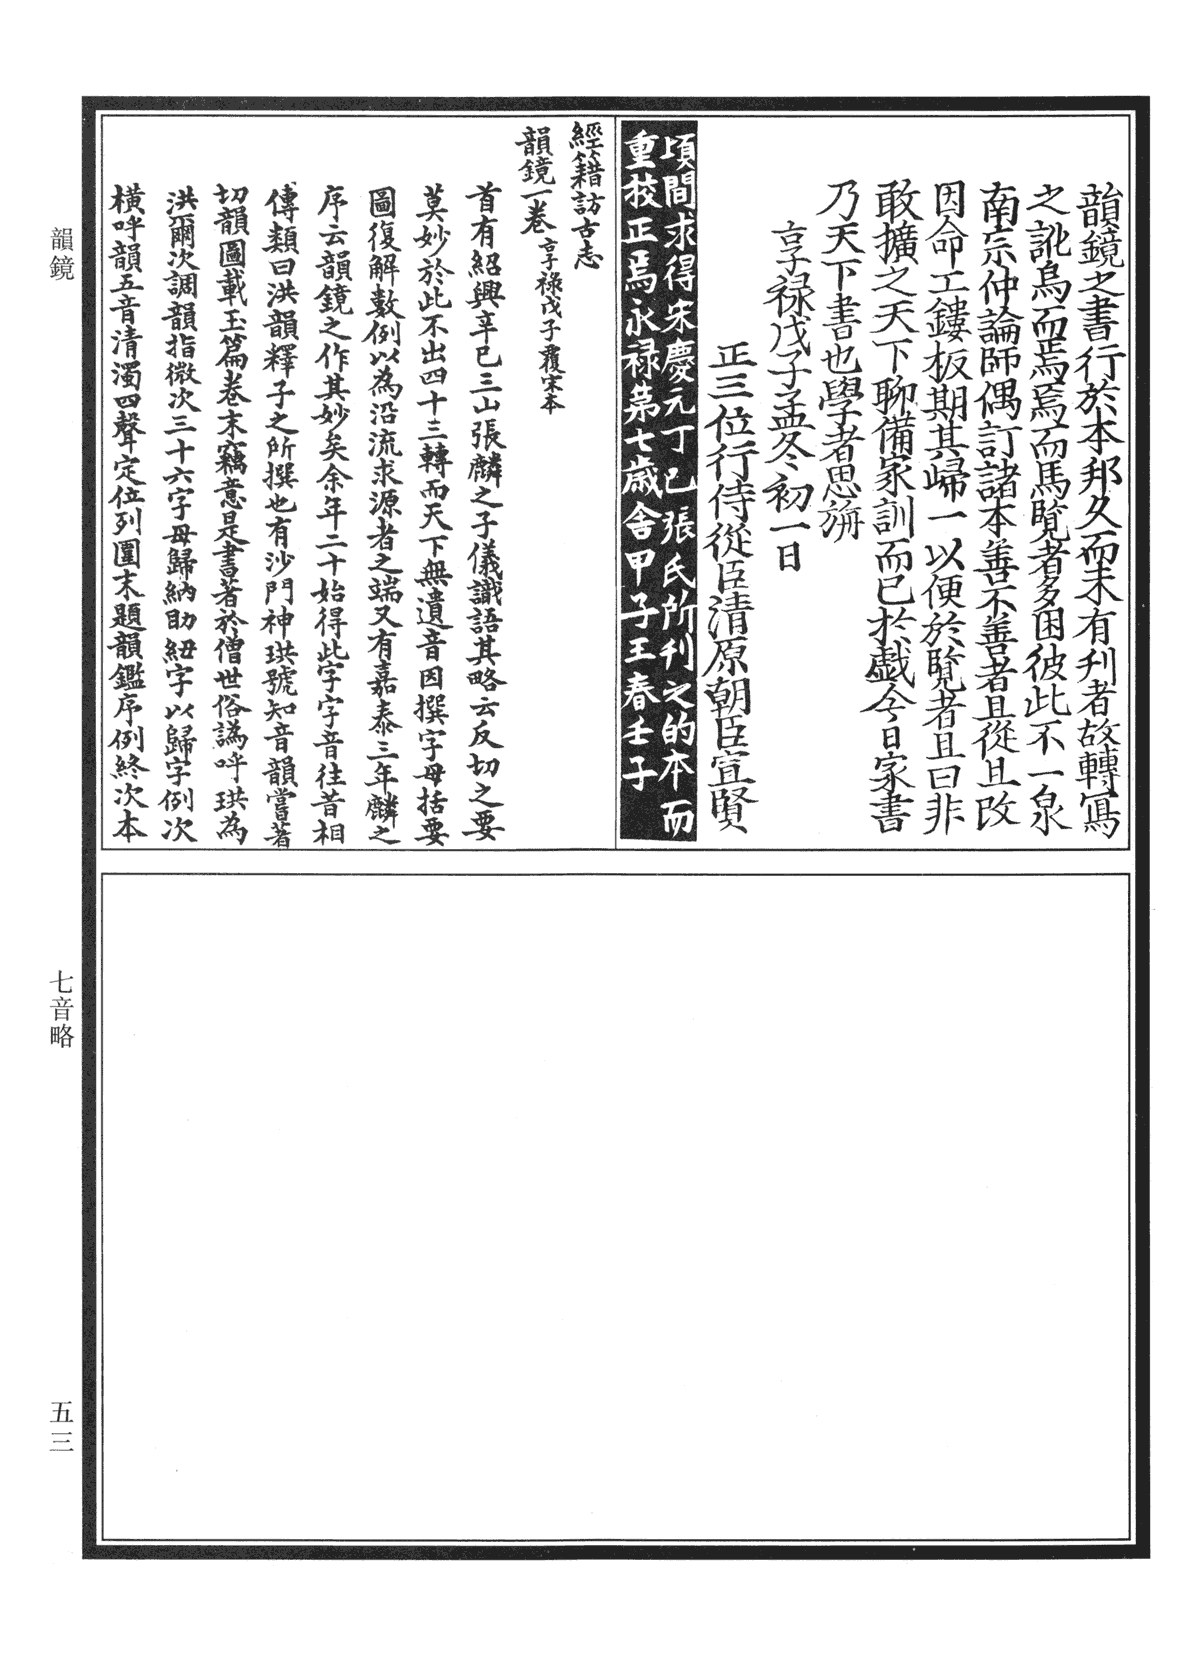 韻鏡之書行於本邦久而未有刋者故轉寫
之訛烏而焉焉而馬覽者多困彼此不一泉
南宗仲論師偶訂諸本善不善者且從且改
因命工鏤板期其歸一以便於覽者且曰非
敢擴之天下聊備家訓而已於戲今日家書
乃天下書也學者思旃
享祿戊子孟冬初一日
正三位行侍從臣清原朝臣宣賢
頃間求得宋慶元丁巳張氏所刊之的本而
重校正焉永禄第七歲舍甲子王春壬子
經籍訪古志
韻鏡一卷 享祿戊子覆宋本
首有紹興辛巳三山張麟之子儀識語其略云反切之要
莫妙於此不出四十三轉而天下無遺音因撰字母括要
圖復解數例以為沿流求源者之端又有嘉泰三年麟之
序云韻鏡之作其妙矣余年二十始得此字字音往昔相
傳類曰洪韻釋子之所撰也有沙門神珙號知音韻嘗著
切韻圖載玉篇卷末竊意是書著於僧世俗譌呼珙為
洪爾次調韻指微次三十六字母歸納助紐字以歸字例次
橫呼韻五音清濁四聲定位列圍末題韻鑑序例終次本
韻鏡
七音略
五三